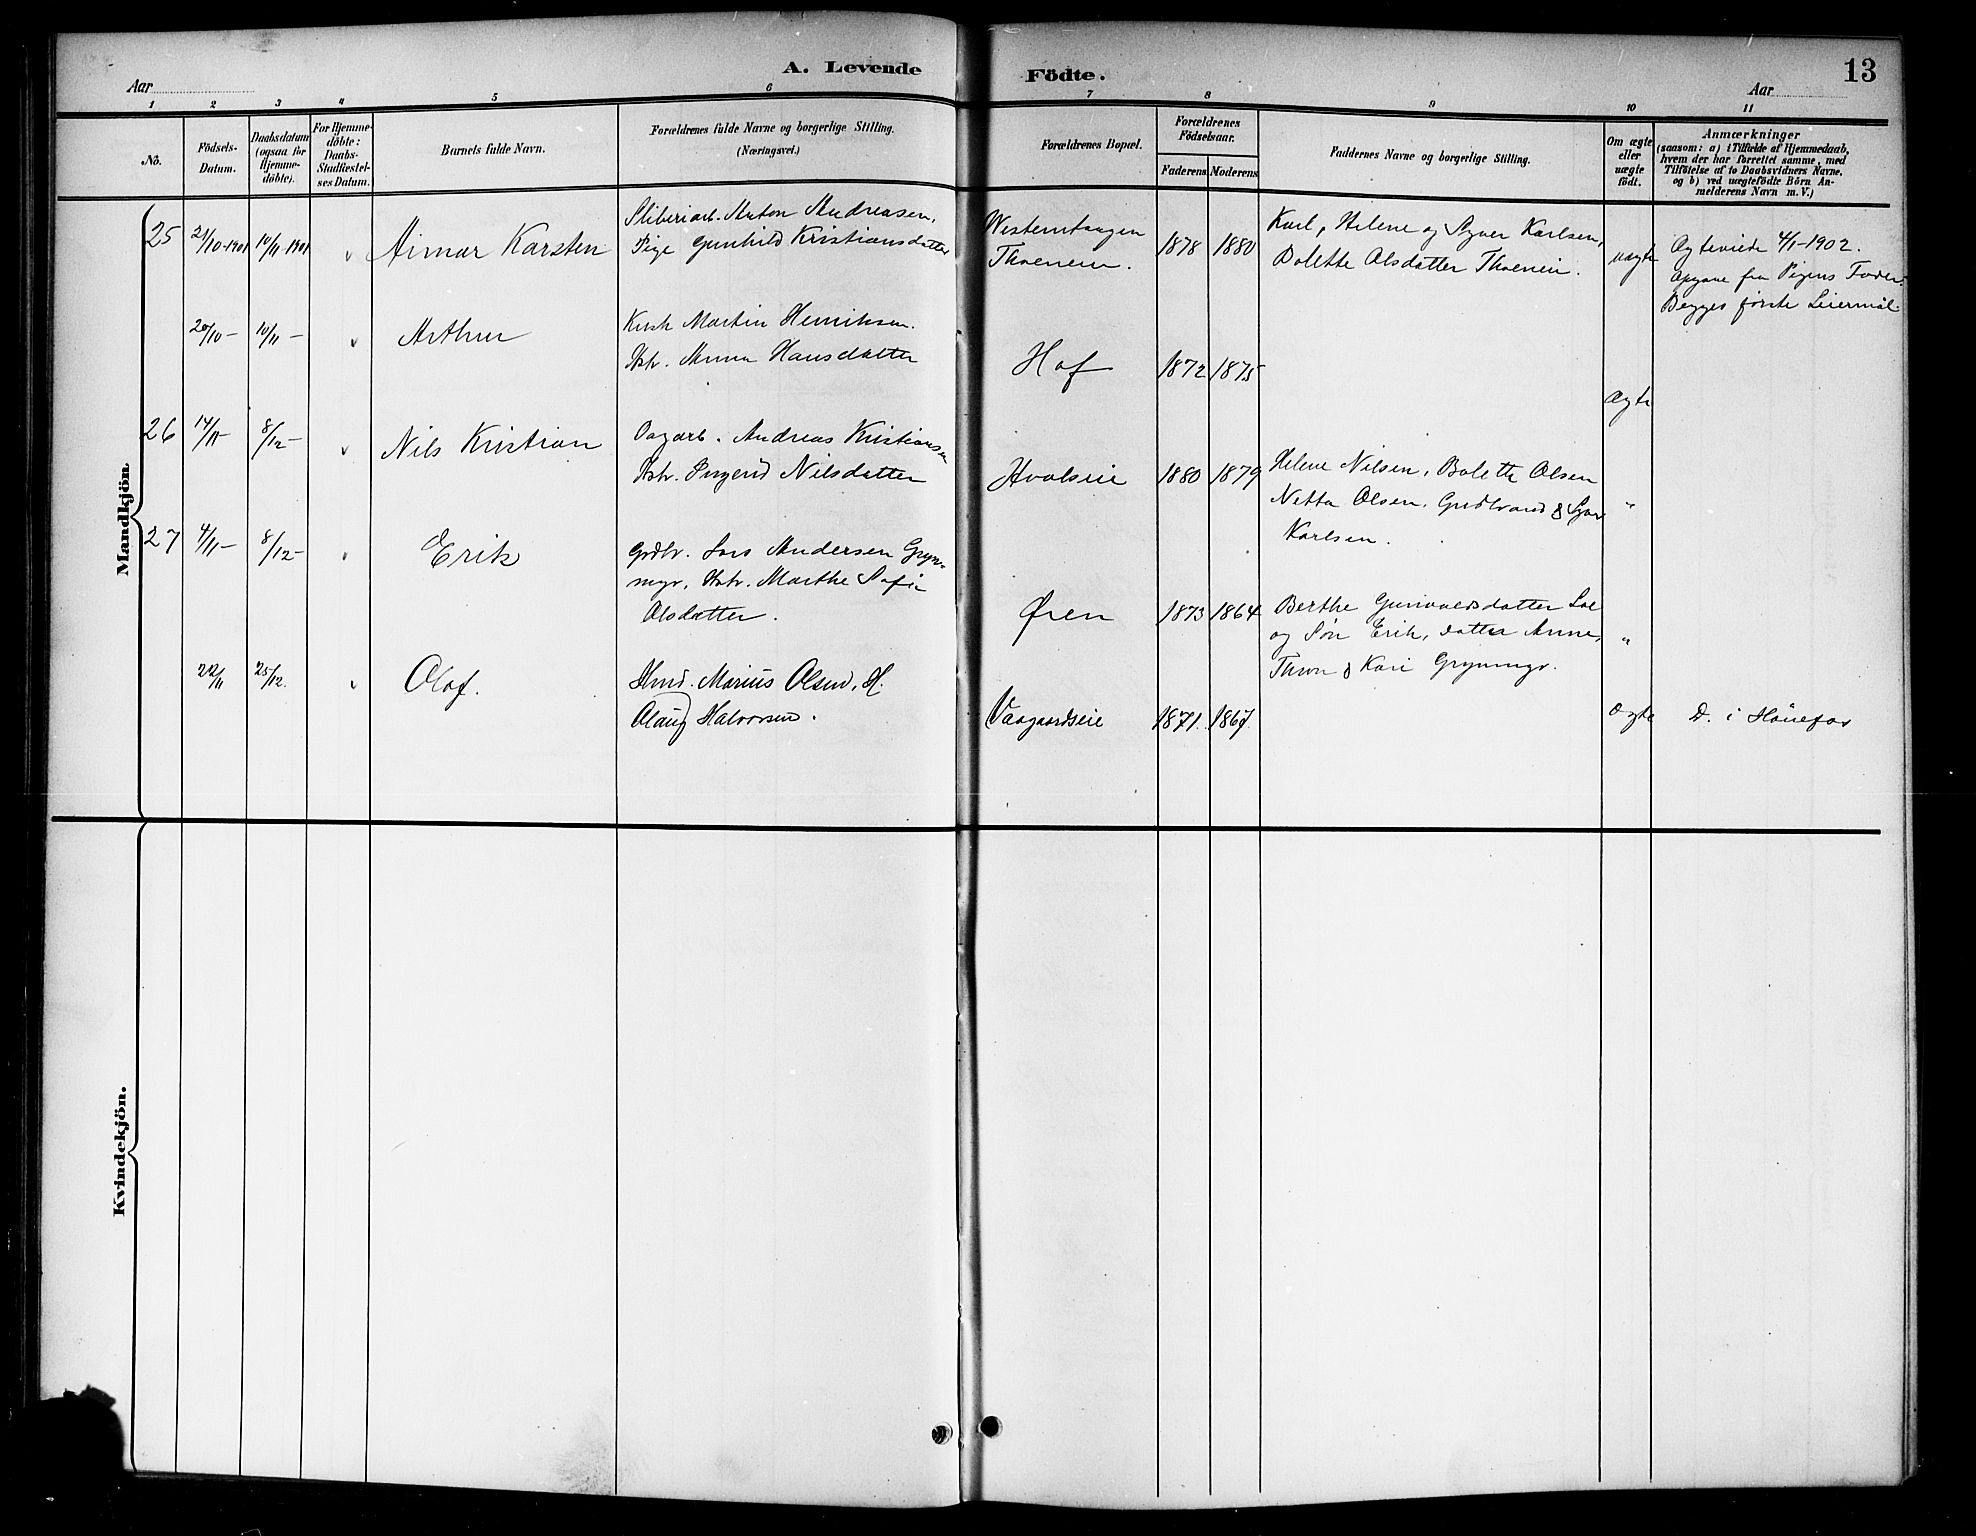 A. Levende Födte.
13
Aar
Aar
1 2 3 4 5 6 7 8 9 10 11
No.
Födsels-Datum.
Daabsdatum (ogsaa for Hjemme-döbte).
For Hjemme-döbte: Daabs-Stadfæstel-ses Datum.
Barnets fulde Navn.
Forældrenes fulde Navne og borgerlige Stilling.
(Næringsvei.)
Forældrenes Bopæl.
Forældrenes Födselsaar.
Faderens Moderens
Faddernes Navne og borgerlige Stilling.
Om ægte eller uægte födt.
Anmærkninger
(saasom: a) i Tilfælde af Hjemmedaab,
hvem der har forrettet samme, med
Tilföielse af to Daabsvidners Navne,
og b) ved uægtefödte Börn An-
melderens Navn m. V.)
Mandkjön
25 21/10-1901 10/11-1901 Aimar Karsten
Sliberiarb. Anton Andreasen,
Pige Gunhild Kristiansdatter
Westerntangen
Thoeneie.
1878 1880
Karl, Helene og Syver Karlsen,
Bolette Olsdatter Thoeneie.
uægte
Ægteviede 4/1-1902.
Opgave fra Pigens Fader.
Begges første Leiermål
20/10- 10/11- Arthur
Martin Henriksen.
Hstr. Anna Hansdatter
Hof
1872 1875
ægte
26 14/11- 8/12- Nils Kristian
Dagarb. Andreas Kristiansen
Hstr. Ingerid Nilsdatter
Hvalseie
1880 1879
Helene Nilsen, Bolette Olsen
Netta Olsen, Gudbrand & Syver
Karlsen.
"
27 4/11- 8/12- Erik
Grdbr. Lars Andersen Gryn-
myr, Hstr. Marthe Sofie
Olsdatter.
Øren
1873 1864
Berthe Gunvaldsdatter
og Søn Erik, datter Anne,
& Kari Grynmyr.
"
22/11 25/12. Olaf.
Marius Olsen, H.
Olaug Halvorsen.
Vaagaardseie
1871. 1867.
ægte
D. i Hönefos
Kvindekjön.